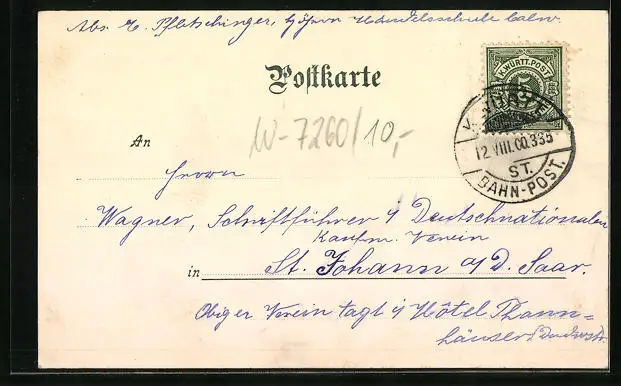 Abs. E. Pfletschinger, z. Zt. Handelsschule Calw.
K. WÜRTT. POST
5
Postkarte
12 VIII. 00. 335
ST.
BAHN-POST.
W-7260/10,-
An
Herrn
Wagner, Schriftführer d Deutschnationalen
Kaufm. Verein
in St. Johann a/D. Saar.
Obiger Verein tagt i/ Hôtel Thann=
häuser